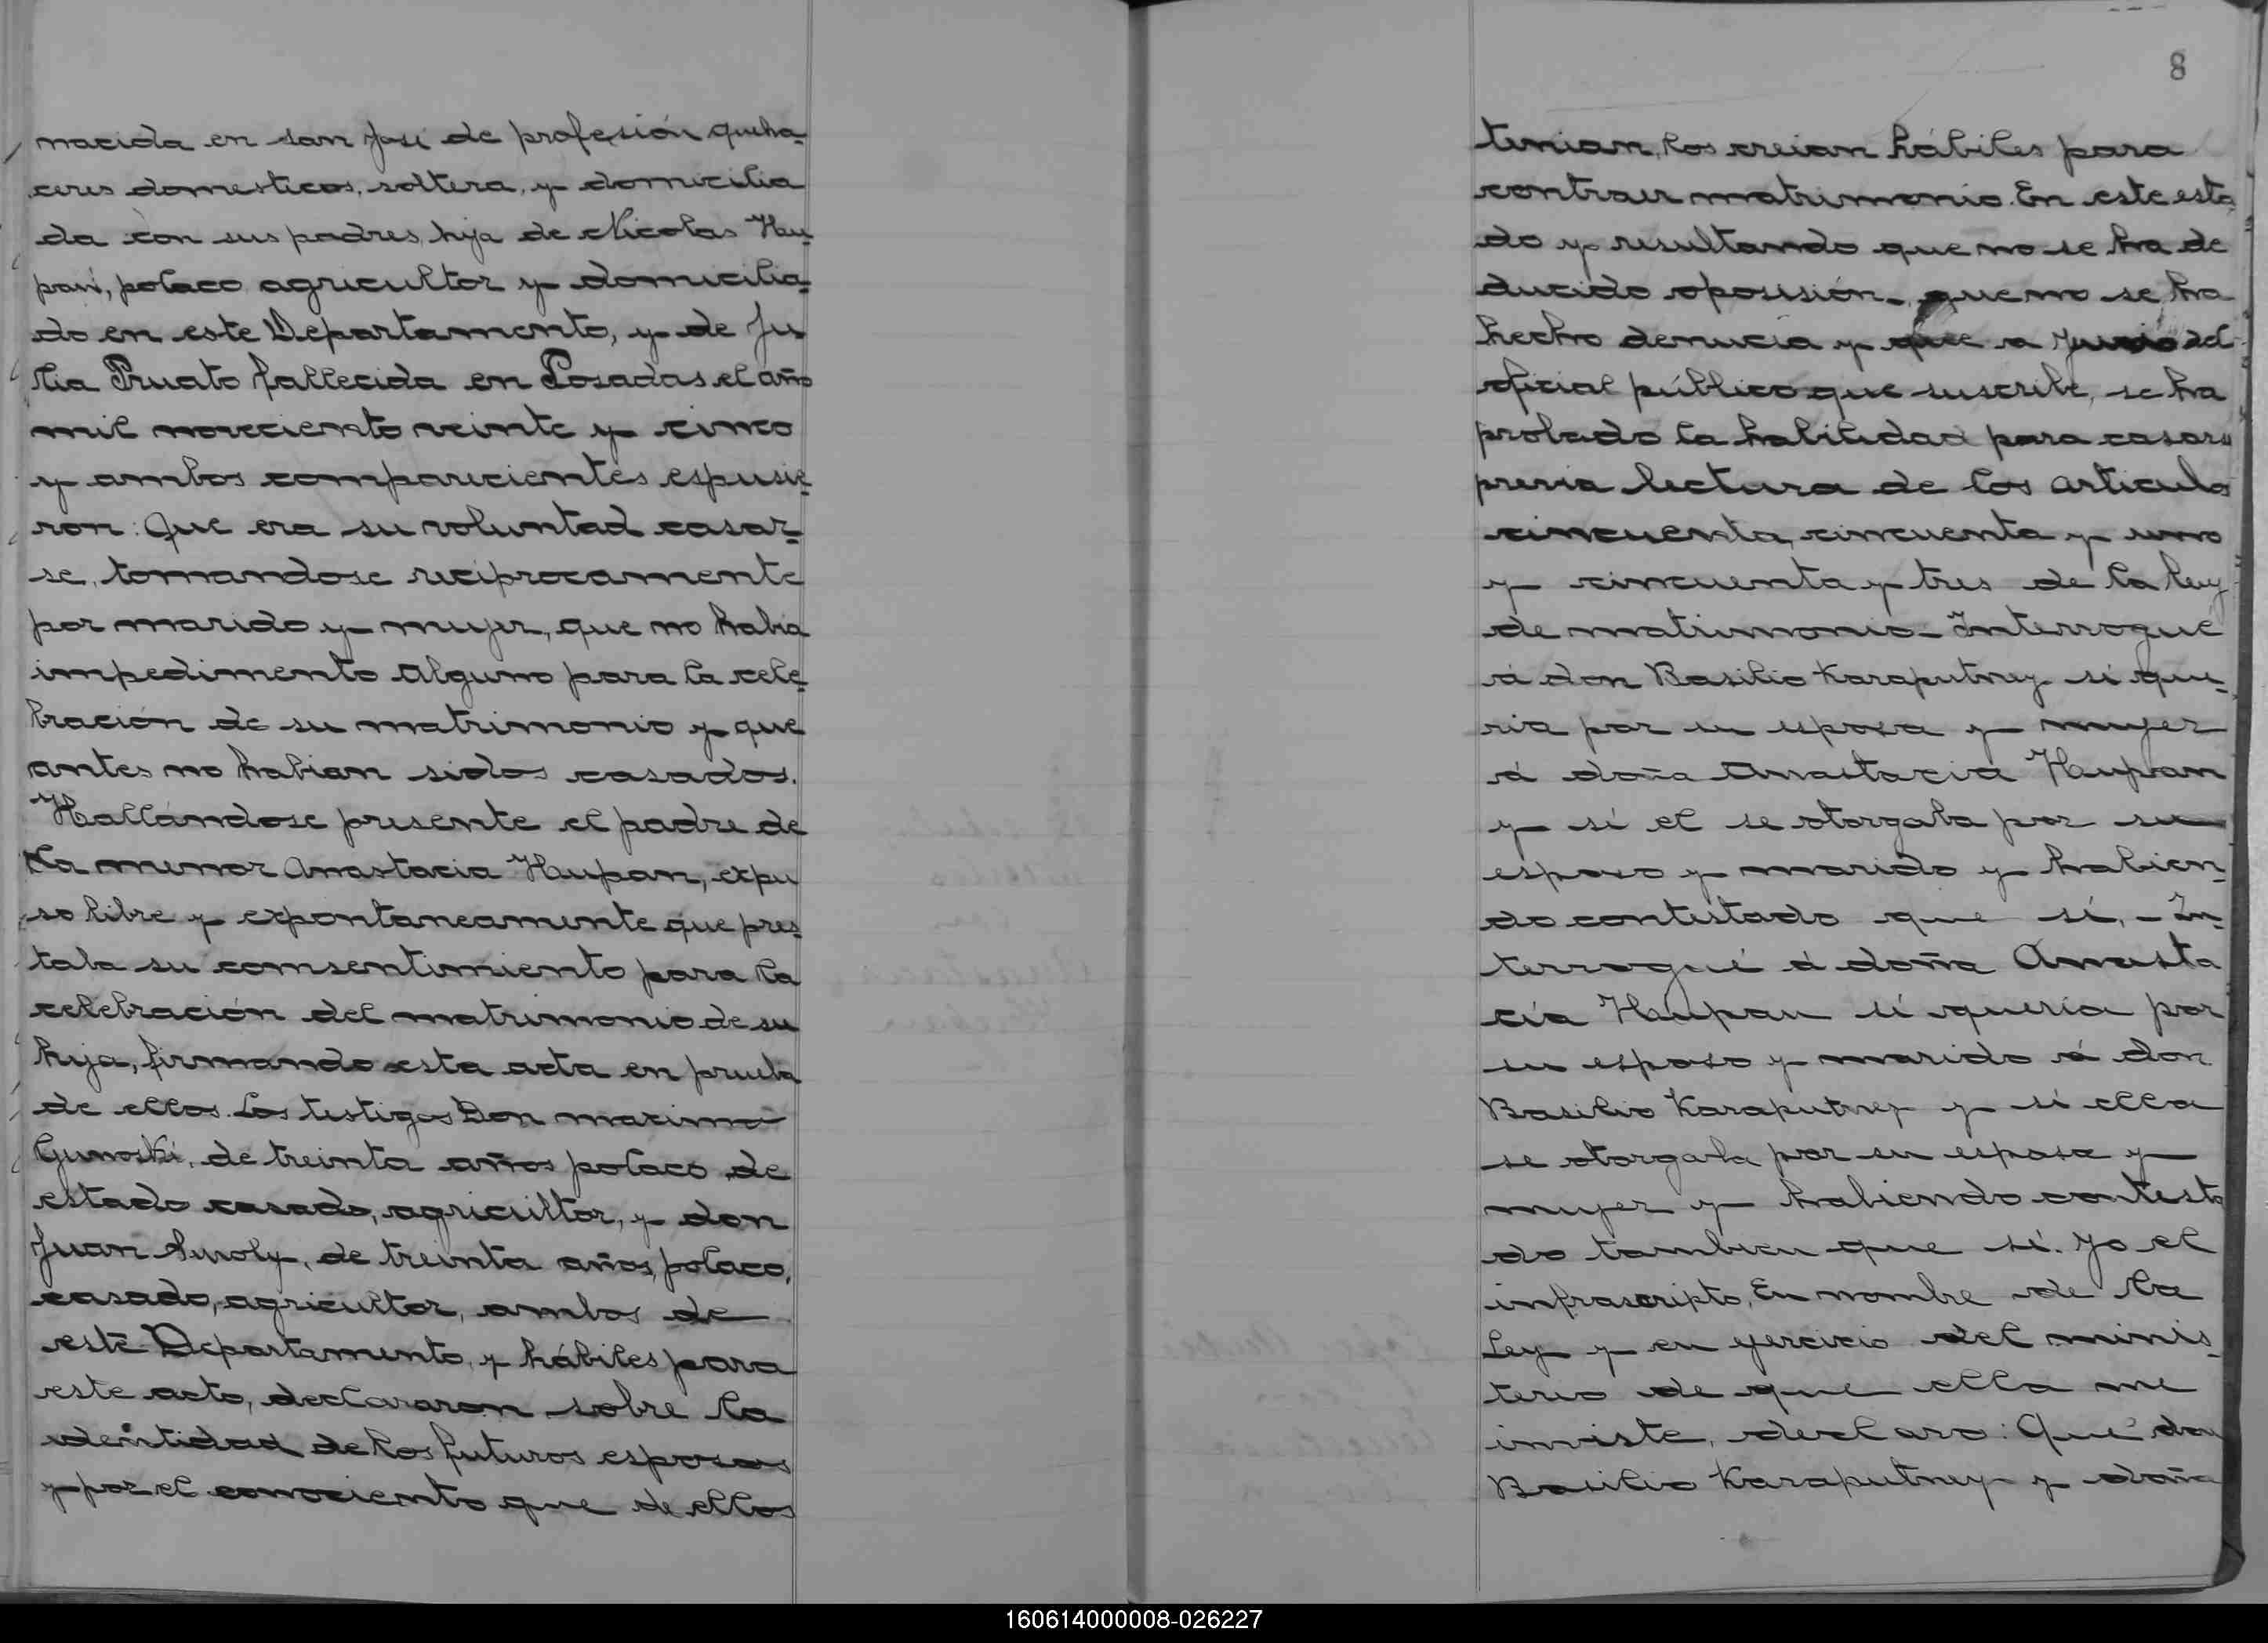 nacida en san José de profesión queha-
ceres domesticos, soltera, y domicilia
da con sus padres, hija de Nicolas Hu-
pan, polaco agricultor y domicilia-
do en este Departamento, y de Ju
lia Pruato fallecida en Posadas el año
mil noveciento veinte y cinco
y ambos comparecientes espusie-
ron: Que era su voluntad casar-
se, tomandose reciprocamente
por marido y mujer, que no habia
impedimento alguno para la cele-
bración de su matrimonio y que
antes no habian sidos casados.
Hallándose presente el padre de
la menor Anastacia Hupan, expu
so libre y expontaneamente que pres-
taba su comsentimiento para la
celebración del matrimonio de su
hija, firmando esta acta en prueba
de ellos. Los testigos Don maximo
Gunoski, de treinta años polaco de
estado casado, agricultor, y don
Juan de treinta años, polaco,
casado, agricultor, ambos de
este Departamento, y hábiles para
este acto, declararon sobre la
identidad de los futuros esposos
y por el conociento que de ellos
8
tenian, los creian hábiles para
contraer matrimonio. En este esta
do y resultando que no se ha de
ducido oposisión, que no se ha
hecho denucia y que a juicio del
oficial público que suscribe, se ha
probado la habilidad para casars
previa lectura de los articulos
cincuenta, cincuenta y uno
y cincuenta y tres de la ley
de matrimonio - Interrogue
á don Basilio Karaputney si que-
ria por su esposa y mujer
á doña Anastacia Hupan
y si el se otorgaba por su
esposo y marido y habien-
do contestado que sí, - In-
terrogué á doña Anasta
cia Hupan si queria por
su esposo y marido á don
Basilio Karaputney y si ella
se otorgaba por su esposa y
mujer y habiendo contesta
do tambien que sí. Yo el
infrascripto, En nombre de la
Ley y en ejercicio del minis-
terio de que ella me
inviste, declaro: Que don
Basilio Karaputney y doña
160614000008-026227